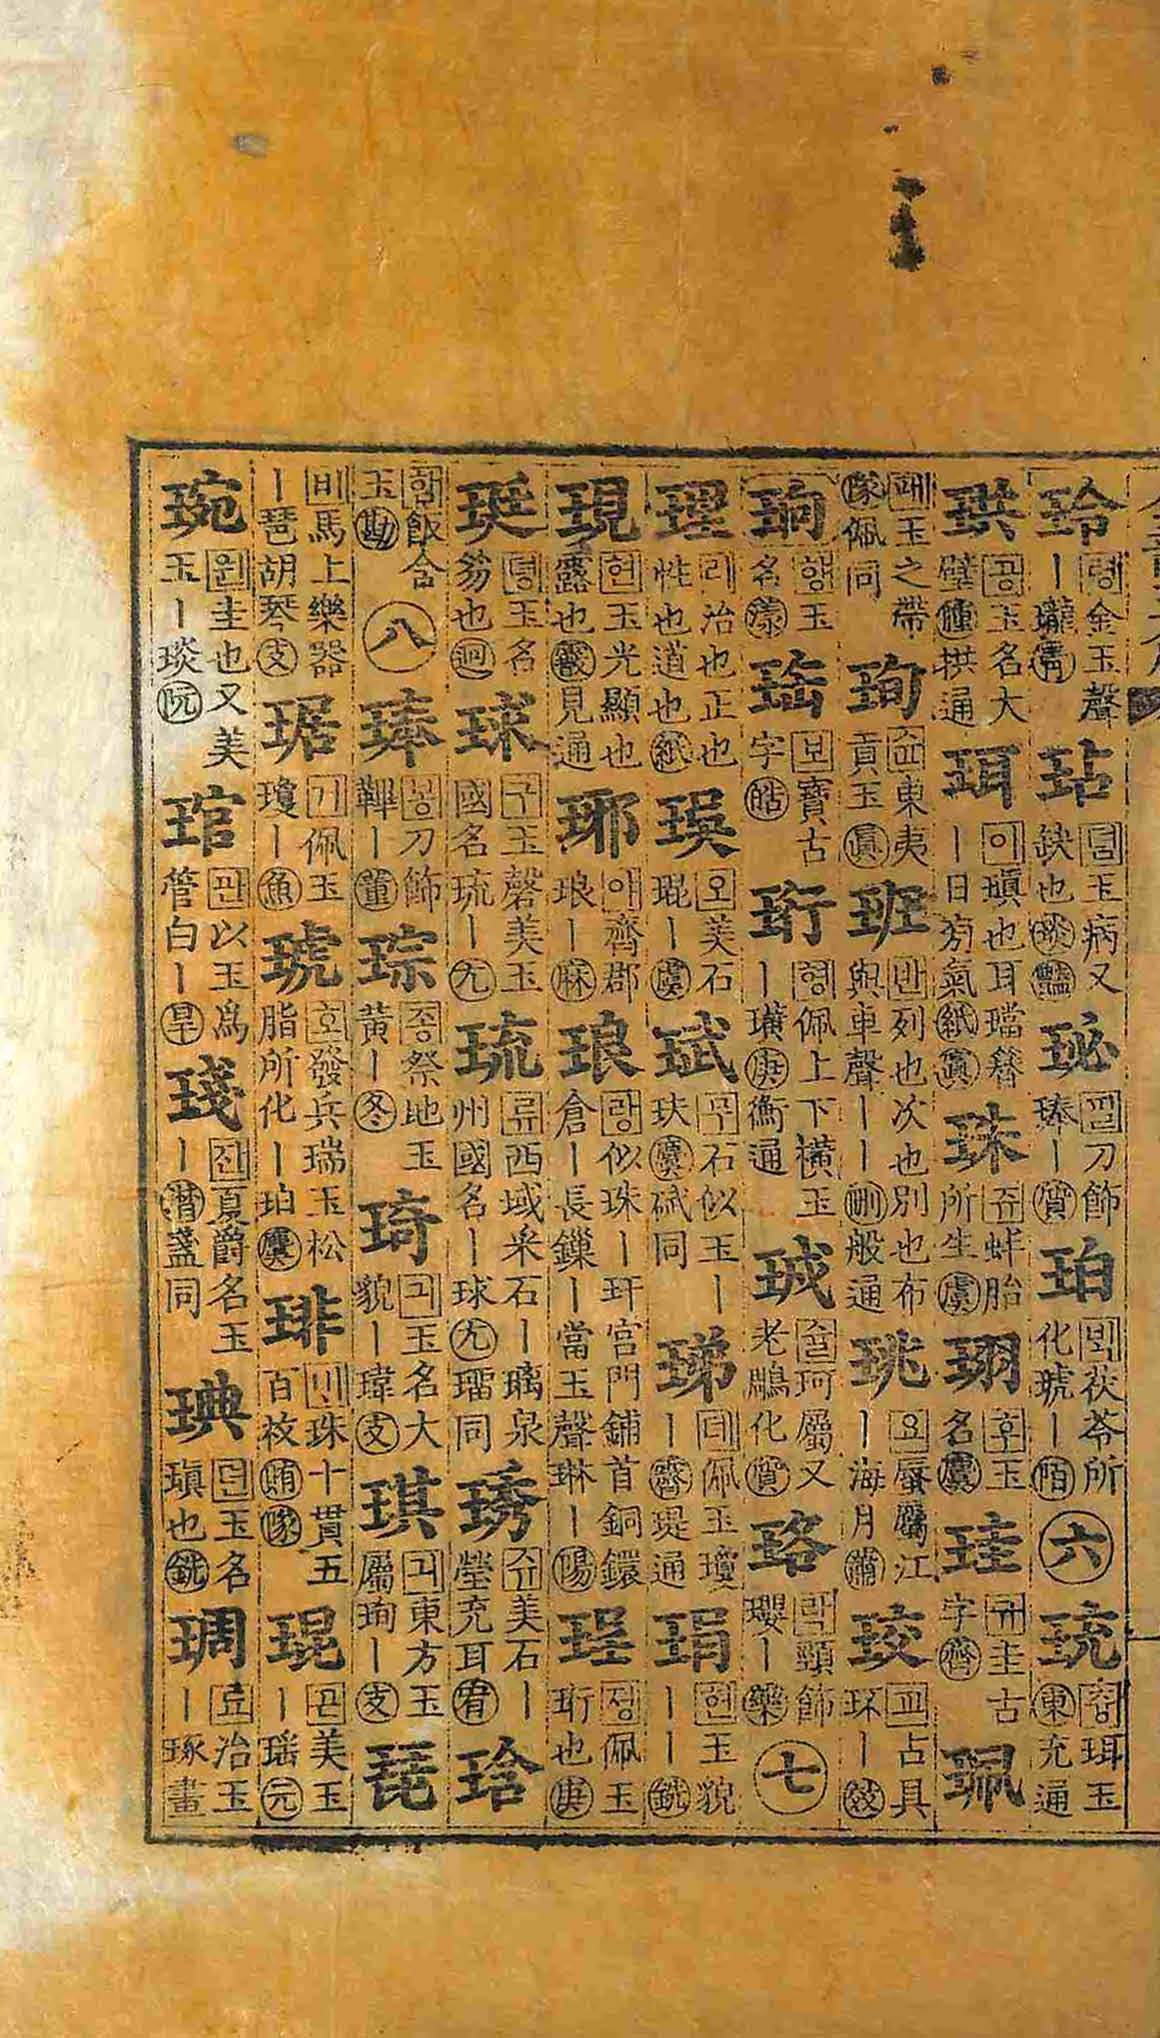 玲 령金玉聲丨瓏靑 玷 뎜玉病又缺也琰豔 珌 필刀飾琫丨質 珀 ᄇᆡᆨ茯苓所化琥丨陌 六 珫 츙珥玉東充通
珙 공玉名大璧腫拱通 珥 이瑱也耳璫簪丨日旁氣紙寘 珠 쥬蚌胎所生虞 珝 후玉名麌 珪 규圭古字齊 珮
패玉之帶隊佩同 珣 슌東夷貢玉眞 班 반列也次也別也布與車聲丨丨刪般通 珧 요蜃屬江丨海月蕭 珓 교占具环丨效
珦 향玉名漾 珤 보寶古字皓 珩 형佩上下橫玉丨璜庚衡通 珬 슐珂屬又老鵰化質 珞 락頸飾瓔丨藥 七
理 리治也正也性也道也紙 珸 오美石琨丨虞 珷 무石似玉丨玞麌碔同 珶 뎨佩玉瓊丨齊瑅通 琄 현玉貌丨丨銑
現 현玉光顯也露也霰見通 琊 야齊郡琅丨麻 琅 랑似珠丨玕宮門鋪首銅鐶倉丨長鏁丨當玉聲琳丨陽 珵 졍佩玉珩也庚
珽 뎡玉名笏也迥 球 구玉磬美玉國名琉丨尤 琉 류西域采石丨璃泉州國名丨球尤瑠同 琇 슈美石丨瑩充耳宥 琀
함飯含玉勘 八 琫 봉刀飾鞞丨董 琮 종祭地玉黃丨冬 琦 긔玉名大貌丨瑋支 琪 긔東方玉屬珣丨支 琵
비馬上樂器丨琶胡琴支 琚 거佩玉瓊丨魚 琥 호發兵瑞玉松脂所化丨珀麌 琲 ᄇᆡ珠十貫五百枚賄隊 琨 곤美玉丨瑤元
琬 완圭也又美玉丨琰阮 琯 관以玉爲管白丨旱 琖 잔夏爵名玉丨潸盞同 琠 뎐玉名瑱也銑 琱 됴治玉丨琢畫